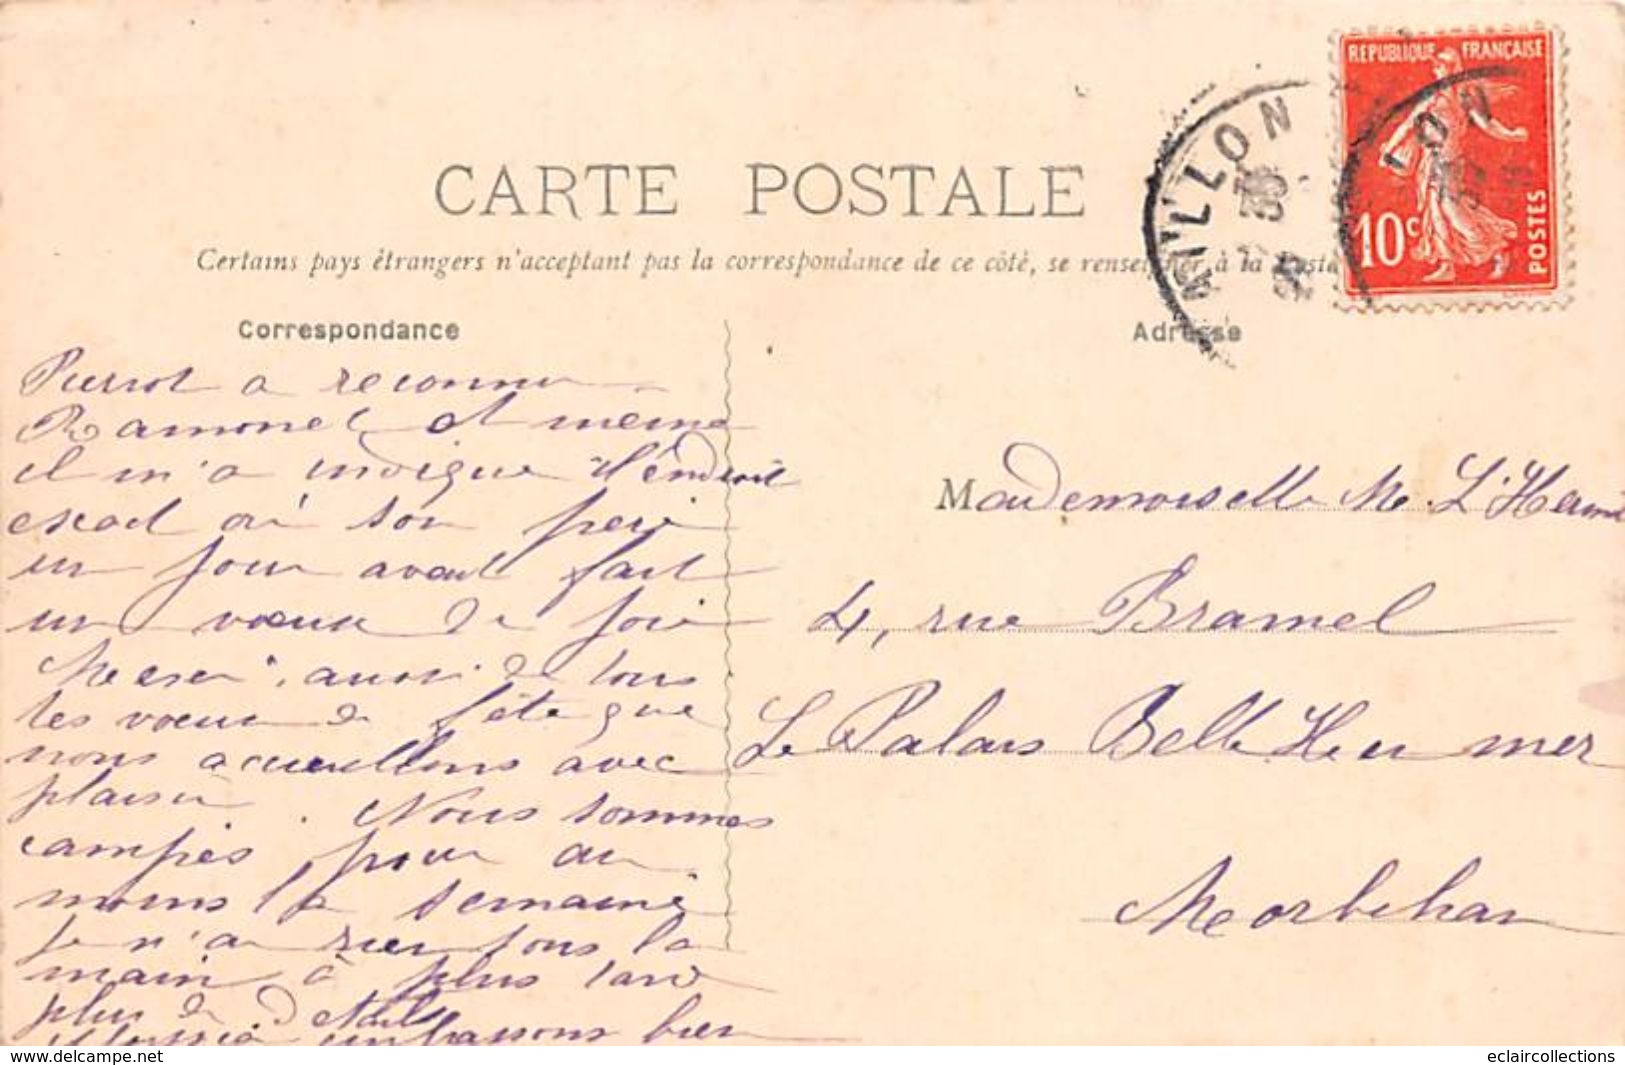 CARTE POSTALE
Certains pays étrangers n'acceptant pas la correspondance de ce côté, se renseigner à la Poste
REPUBLIQUE FRANÇAISE
10c
POSTES
MILLON
Correspondance
Adresse
Pierrot a reconnu
Ramonet et même
il m'a indiqué l'endroit
exact où son père
un jour avait fait
un vœux de joie
Merci aussi de tous
les vœux de fête que
nous accueillons avec
plaisir. Nous sommes
campés pour au
moins la semaine
Je n'ai rien sous la
main à plus tard
plus de détails
embrassons bien
Mademoiselle M. L'Herm
4, rue Bramel
Le Palais Belle Ile en mer
Morbihan
https://www.delcampe.net
eclaircollections